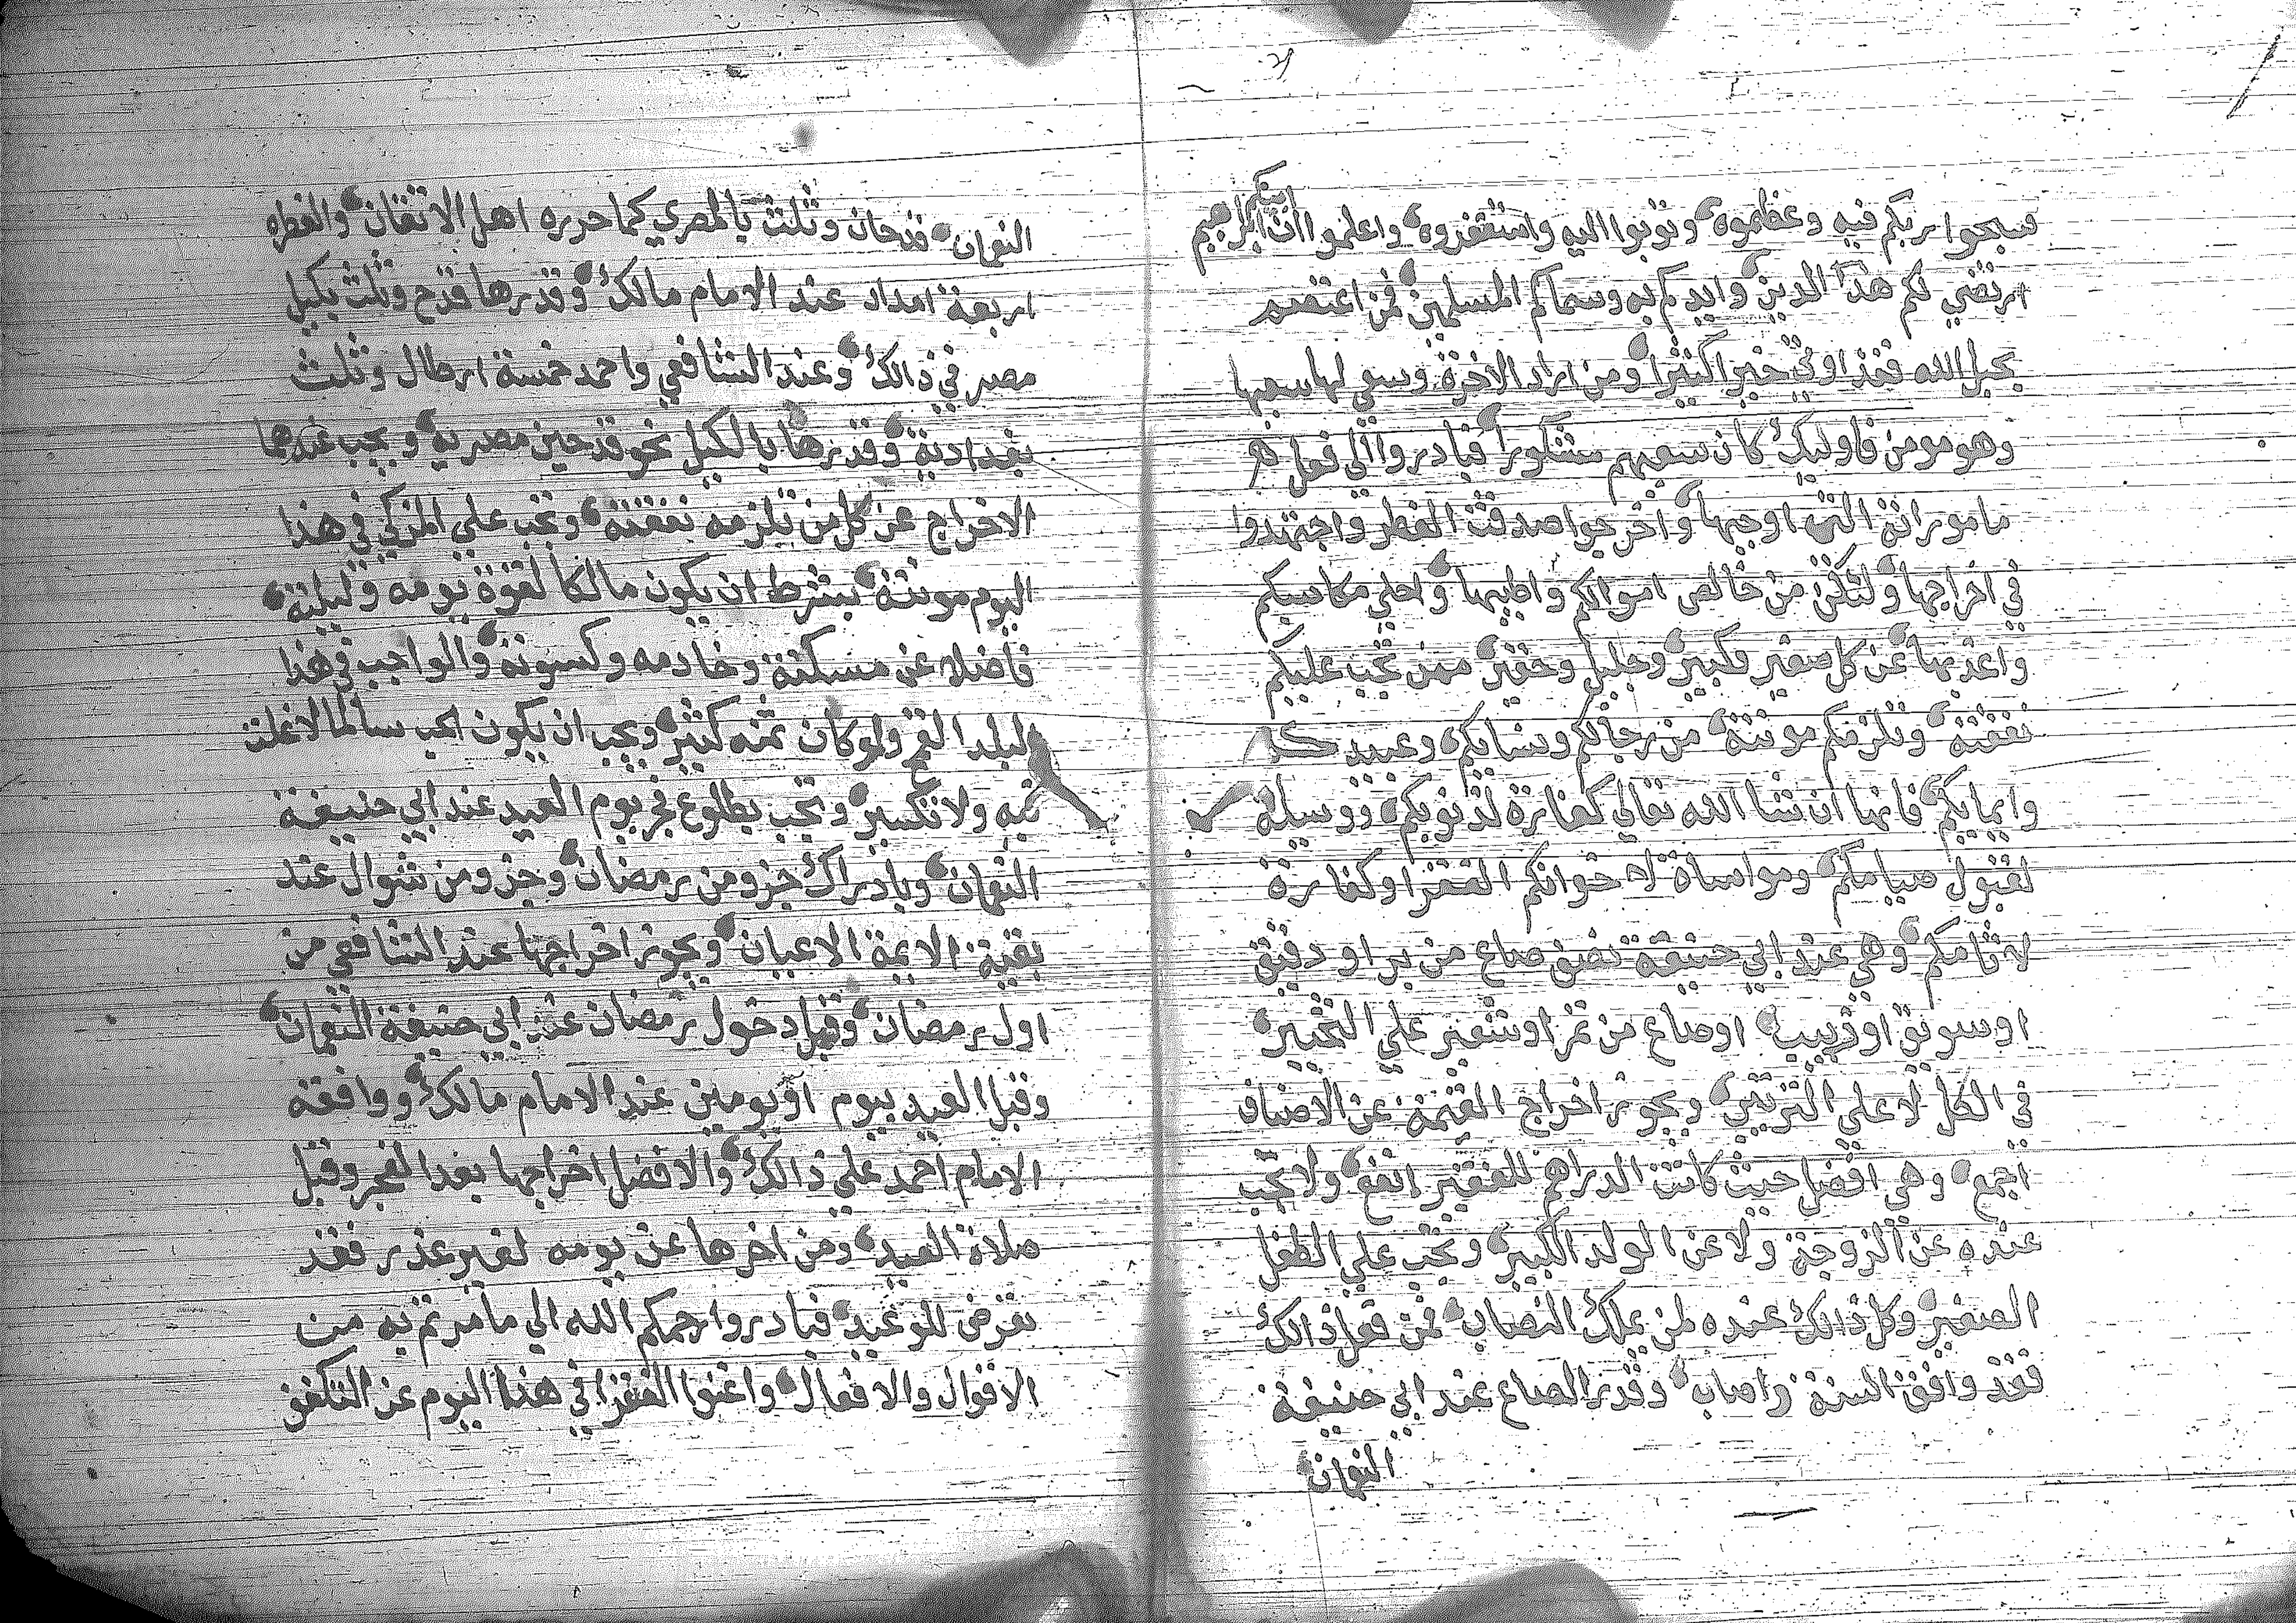 فسبحوا ربكم فيه وعظموه وتوبوا اليه واستغفروه واعلموا ان ابيكم ابراهيم
ارتضي لكم هذا الدين وايدكم به وسماكم المسلمين فمن اعتصم
بحبل الله فقد اوتي خيرا كثيرا ومن اراد الاخرة وسعي لها سعيها
وهو مومن فاوليك كان سعيهم مشكورا فبادروا الي فعل
ماموراته التي اوجبها واخرجوا صدقت الفطر واجتهدوا
في اخراجها ولتكن من خالص اموالكم واطيبها واحلي مكاسبكم
عن كل صغير وكبير وجليل وحقير ممن تجب عليكم
نفقته وتلزمكم مونته من رجالكم ونسايكم وعبيدكم
وايمايكم فانها ان شا الله تعالي كفارة لذنوبكم ووسيلة
لقبول صيامكم ومواساة لاخوانكم الفقرا وكفارة
لاثامكم وهي عند ابي حنيفة نصف صاع من بر او دقيق
او سويق او زبيب او صاع من تمر او شعير علي التخيير
في الكل لا علي الترتيب ويجوز اخراج القيمة عن الاصناف
اجمع وهي افضل حيث كانت الدراهم للفقير انفع ولا تجب
عنده عن الزوجة ولا عن الولد الكبير وتجب علي الطفل
الصغير وكل ذالك عنده لمن يملك النصاب فمن فعل ذالك
فقد وافق السنة واصاب وقدر الصاع عند ابي حنيفة
النعمان
النعمان قدحان وثلث بالمصري كما حرره اهل الاتقان والفطره
اربعة امداد عند الامام مالك وقدرها قدح وثلث بكيل
مصر في ذالك وعند الشافعي واحمد خمسة ارطال وثلث
بغدادية وقدرها بالكيل نحو قدحين مصريه ويجب عندهما
الاخراج عن كل من تلزمه نفقته وتجب علي المزكي في هذا
اليوم مونته بشرط ان يكون مالكا لقوة يومه وليلته
فاضلا عن مسكنه وخادمه وكسوته والواجب في هذا
البلد القمح ولو كان ثمنه كثير ويجب ان يكون الحب سالما لا غلت
فيه ولا تكسير وتجب بطلوع فجر يوم العيد عند ابي حنيفة
النعمان وبادراك جزو من رمضان وجزو من شوال عند
بقية الايمة الاعيان ويجوز اخراجها عند الشافعي من
اول رمضان وقبل دخول رمضان عند ابي حنيفة النعمان
وقبل العيد بيوم او يومين عند الامام مالك ووافقه
الامام احمد علي ذالك والافضل اخراجها بعد الفجر وقبل
صلاة العيد ومن اخرها عن يومه لغير عذر فقد
تعرض للوعيد فبادروا رحمكم الله الي ما امرتم به من
الاقوال والافعال واغنوا الفقرا في هذا اليوم عن التكفف